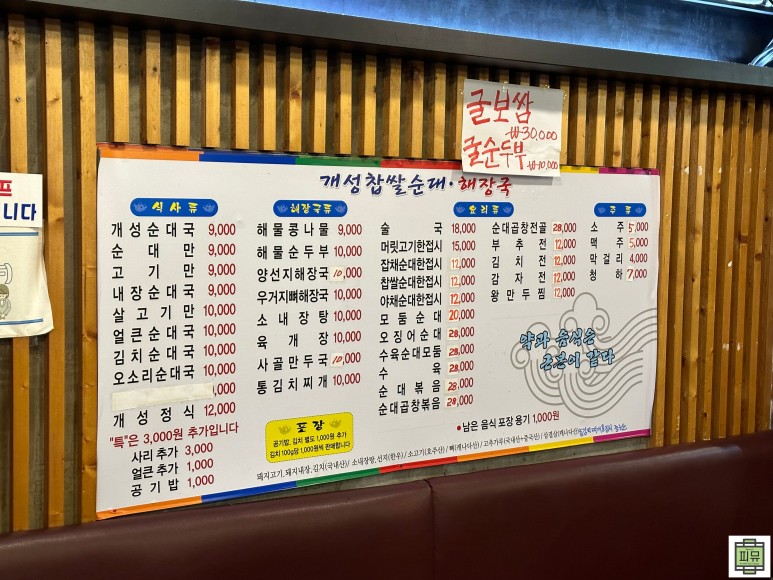 굴보쌈
₩30,000
굴순두부
₩10,000
프
니다
개성찹쌀순대·해장국
식사류
개성순대국 9,000
순대만 9,000
고기만 9,000
내장순대국 9,000
살고기만 10,000
얼큰순대국 10,000
김치순대국 10,000
오소리순대국 10,000
,000
개성정식 12,000
"특"은 3,000원 추가입니다
사리추가 3,000
얼큰추가 1,000
공기밥 1,000
해장국류
해물콩나물 9,000
해물순두부 10,000
양선지해장국 10,000
우거지뼈해장국 10,000
소내장탕 10,000
육개장 10,000
사골만두국 10,000
통김치찌개 10,000
포장
공기밥, 김치 별도 1,000원 추가
김치 100g당 1,000원씩 판매합니다
요리류
술국 18,000
머릿고기한접시 15,000
잡채순대한접시 12,000
찹쌀순대한접시 12,000
야채순대한접시 12,000
모둠순대 20,000
오징어순대 28,000
수육순대모둠 28,000
수육 28,000
순대볶음 28,000
순대곱창볶음 28,000
순대곱창전골 28,000
부추전 12,000
김치전 12,000
감자전 12,000
왕만두찜 12,000
주류
소주 5,000
맥주 5,000
막걸리 4,000
청하 7,000
약과 음식은
근본이 같다
•남은 음식 포장 용기 1,000원
돼지고기, 돼지내장, 김치(국내산)/ 소내장탕, 선지(한우)/ 소고기(호주산)/ 뼈(캐나다산)/ 고추가루(국내산+중국산)/ 삼겹살(캐나다산)
피뮤